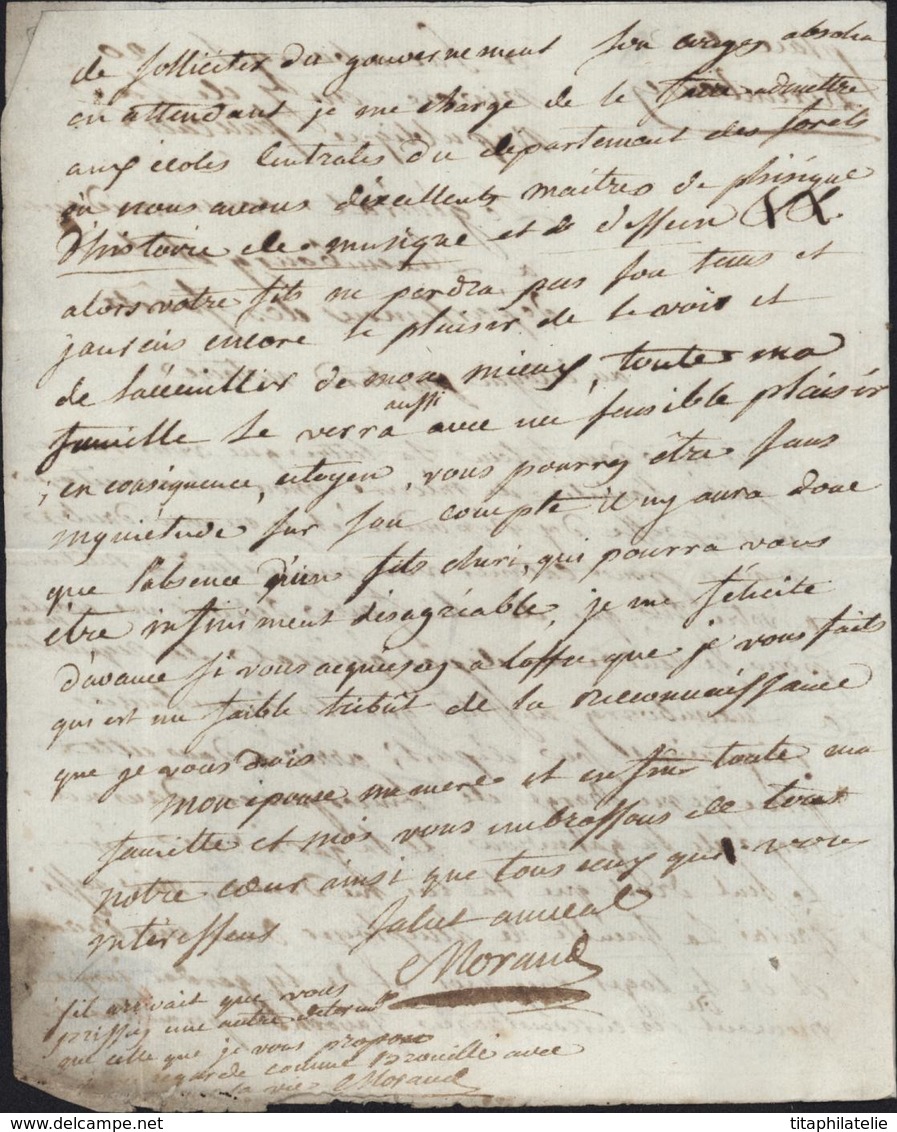 de solliciter du gouvernement son congez absolu
en attendant je me charge de le faire admettre
aux écoles Centrales du departement des forêts
où nous avons d'éxcellents maitres de phisique
d'histoire de musique et de dessein
alors votre fils ne perdra pas son tems et
jaurais encore le plaisir de le voir et
de lacceuillir de mon mieux, toute ma
aussi
famille le verra avec un sensible plaisir
; en consequence, citoyen, vous pourrez être sans
inquietude sur son compte il ny aura donc
que l'absence d'un fils cheri, qui pourra vous
être infiniment désagréable, je me félicite
d'avance si vous acquiesez a loffre que je vous faits
qui est un faible tribût de la reconnaissance
que je vous dois
Mon epouse ma mere et enfin toute ma
famille et moi vous embrassons de tout
notre cœur ainsi que tous ceux qui vous
interessens Salut amical
Morand
s'il arrivait que vous
prissiez une autre
que celle que je vous propose
regarde comme Brouillé avec
la vie Morand
titaphilatelie